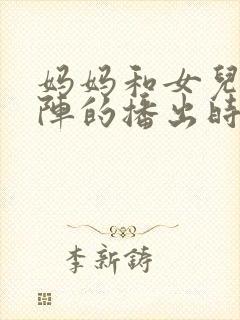 妈妈和女兒
陣的播出時
李新鋳